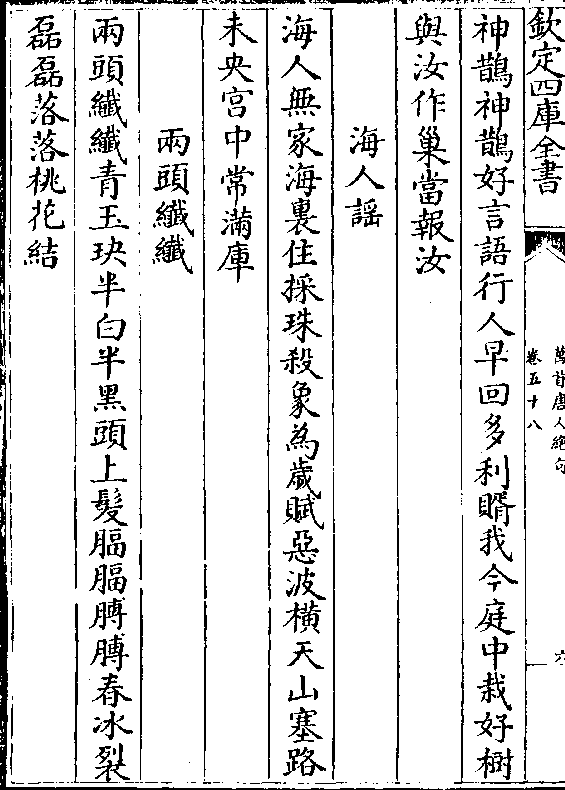 欽定四庫全書
萬首唐人絶句
卷五十八
六
神鵲神鵲好言語行人早回多利賂我今庭中栽好樹
與汝作巢當報汝
海人謡
海人無家海裏住採珠殺象為歲賦惡波橫天山塞路
未央宫中常滿庫
兩頭纖纖
兩頭纖纖青玉玦半白半黑頭上髮膈膈膊膊春冰裂
磊磊落落桃花結